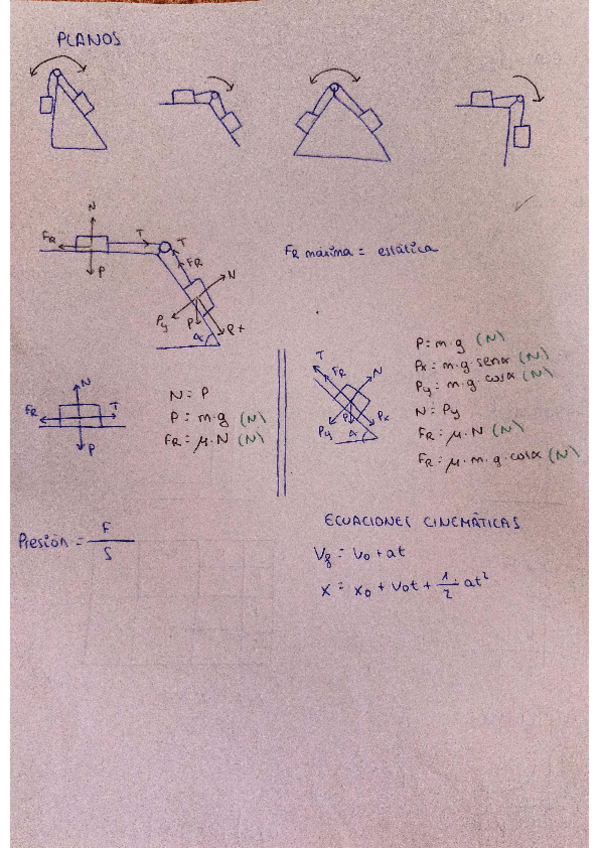 PLANOS
N
FR
T
T
P
FR
N
Py
P
Px
α
FR máxima = estática
N
FR
T
P
N = P
P = m·g (N)
FR = μ·N (N)
T
FR
N
P
Px
Py
α
P = m·g (N)
Px = m·g·senα (N)
Py = m·g·cosα (N)
N = Py
FR = μ·N (N)
FR = μ·m·g·cosα (N)
Presión = F
S
ECUACIONES CINEMÁTICAS
Vf = v0 + at
x = x0 + v0t + 1/2 · at²